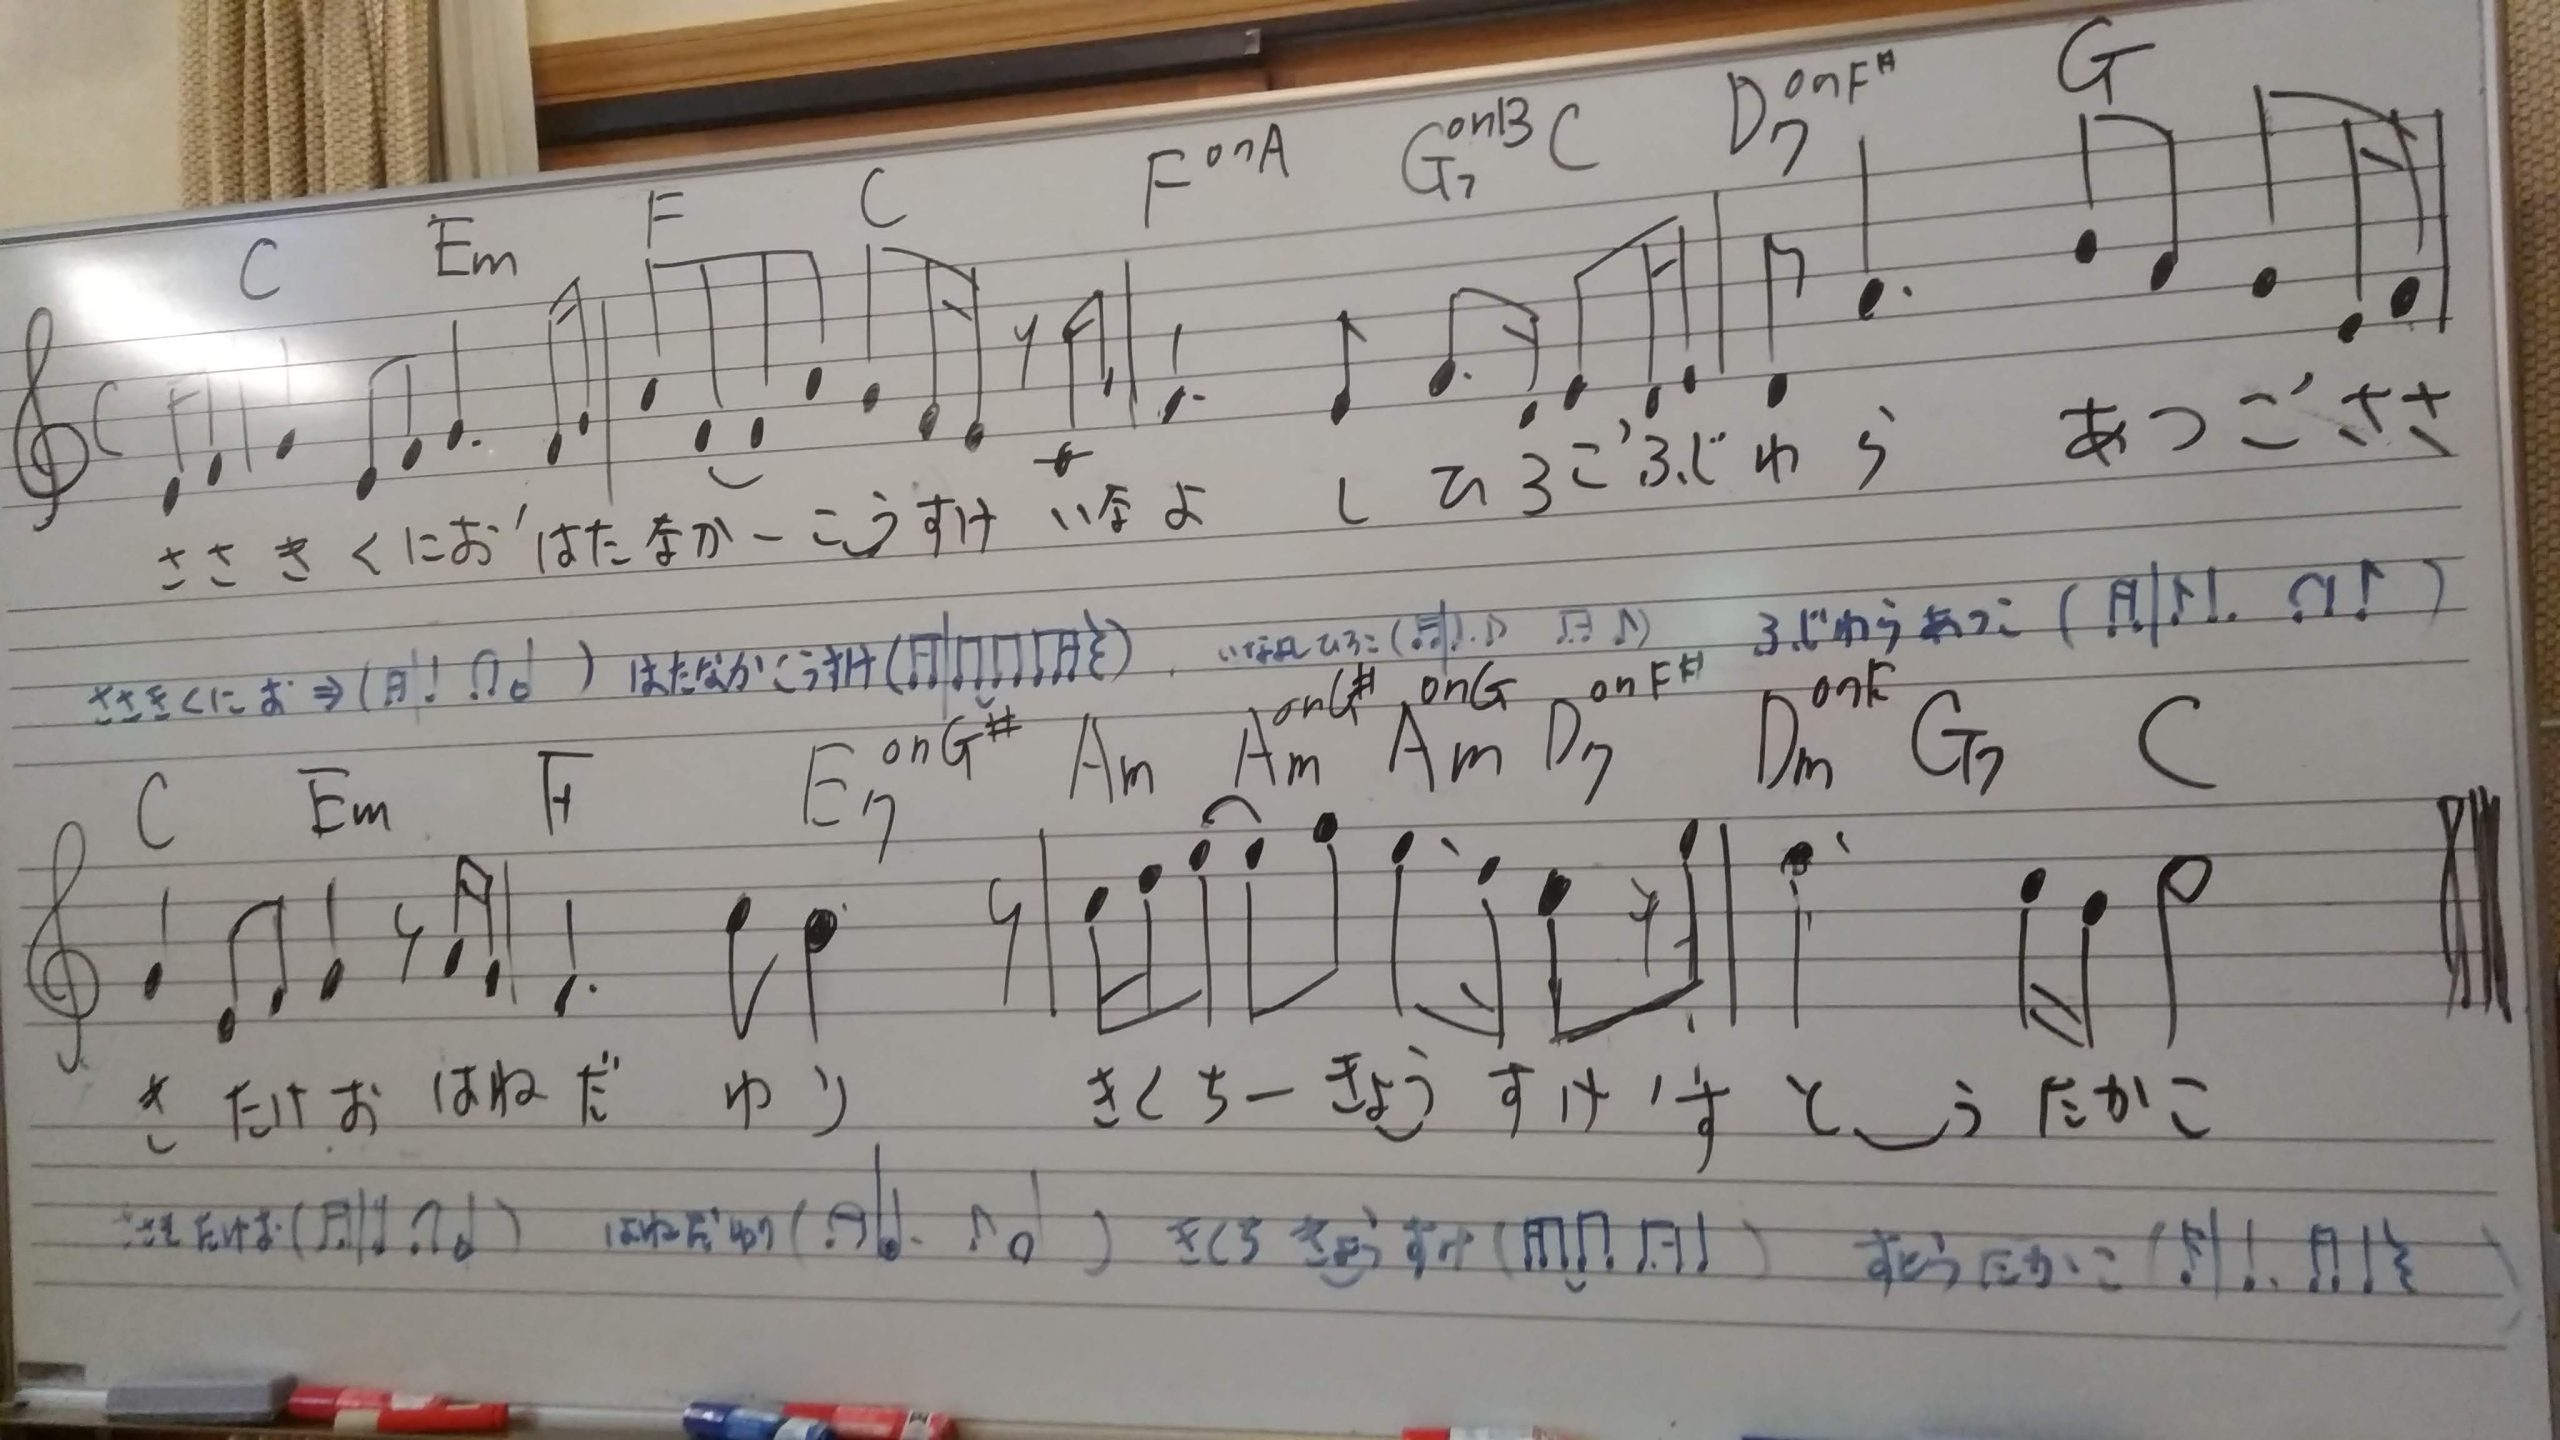 C Em F C FonA G7onB C D7onF# G
ささきくにおはたなかーこうすけいなよしひろこふじわらあつこささ
ささきくにお⇒( ) はたなかこうすけ( ) いなよしひろこ( ) ふじわらあつこ( )
C Em F E7onG# Am AmonG# AmonG D7onF# DmonF G7 C
きたけおはねだゆりきくちーきょうすけすとうたかこ
ささきたけお( ) はねだゆり( ) きくちきょうすけ( ) すとうたかこ( )